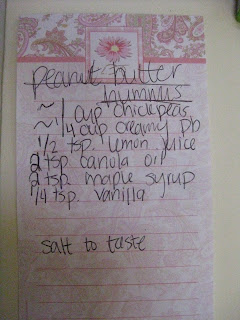 peanut butter
hummus
~ 1 cup chickpeas
~ 1/4 cup creamy pb
1/2 tsp. lemon juice
2 tsp. canola oil
2 tsp. maple syrup
1/4 tsp. vanilla
salt to taste